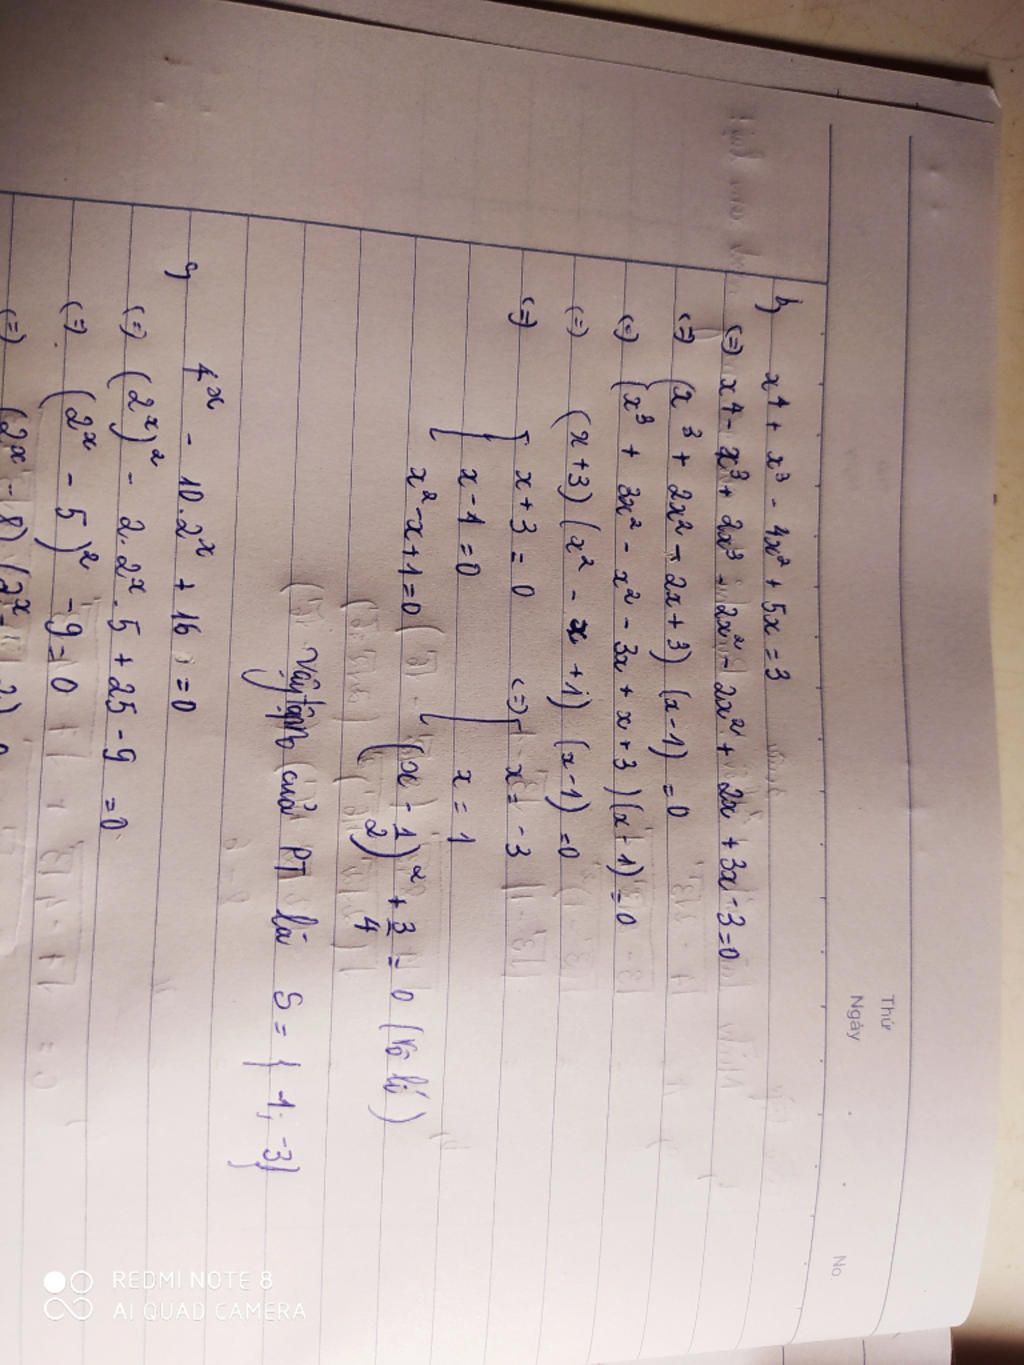 Thứ
Ngày
No.
b) x⁴ + x³ - 4x² + 5x = 3
(=) x⁴ - x³ + 2x³ - 2x² - 2x² + 2x + 3x - 3 = 0
(=) (x³ + 2x² - 2x + 3) (x - 1) = 0
(=) (x³ + 3x² - x² - 3x + x + 3) (x - 1) = 0
(=) (x + 3) (x² - x + 1) (x - 1) = 0
(=) [ x + 3 = 0 (=) [ x = -3
x - 1 = 0 x = 1
x² - x + 1 = 0 (x - 1/2)² + 3/4 = 0 (vô lí)
Vậy của PT là S = { 1; -3}
c) 4ˣ - 10.2ˣ + 16 = 0
(=) (2ˣ)² - 2.2ˣ.5 + 25 - 9 = 0
(=) (2ˣ - 5)² - 9 = 0
(=) (2ˣ - 8) (2ˣ -
REDMI NOTE 8
AI QUAD CAMERA